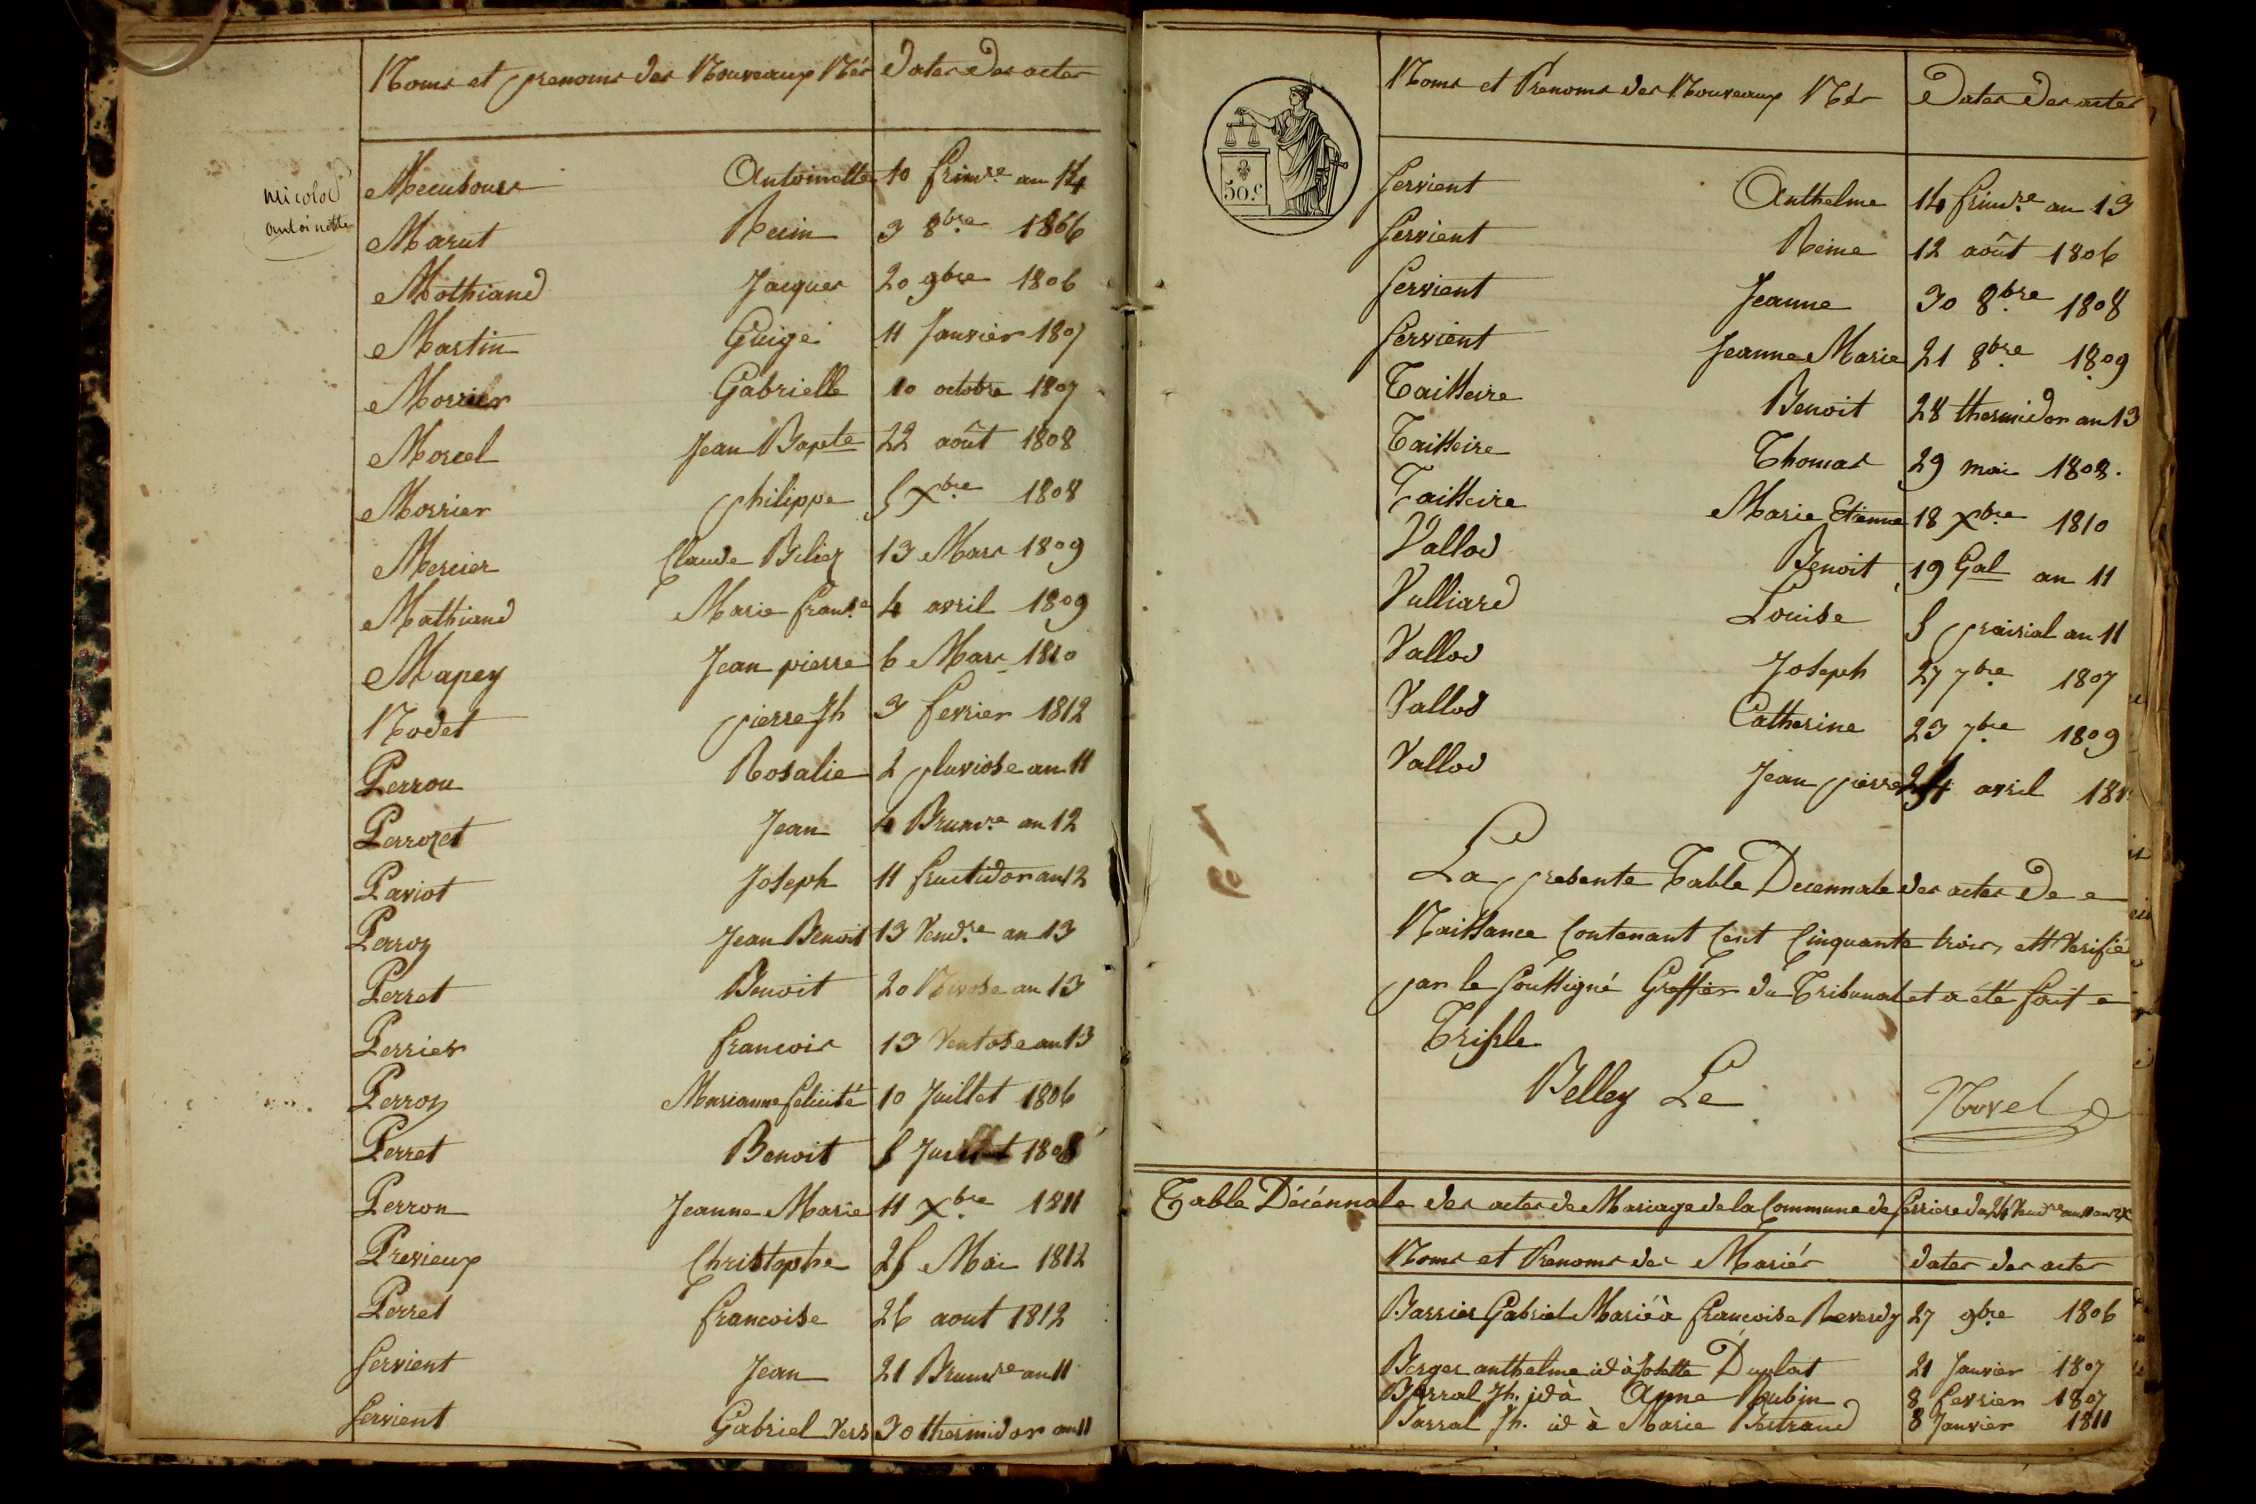 Noms et prenoms des Nouveaux Nés Dates des actes
Micolod
antoinette
Antoinette 10 frimre an 14
Marut 3 8bre 1806
Mathiand Jacques 20 9bre 1806
Martin Guige 11 Janvier 1807
Morrier Gabrielle 10 octobre 1807
Morcel Jean Bapte 22 août 1808
Morrier philippe 5 Xbre 1808
Mercier Claude 13 Mars 1809
Mathiand Marie franse 4 avril 1809
Mapey Jean pierre 6 Mars 1810
Nodet pierre Jh 3 fevrier 1812
Perron Rosalie 2 pluviose an 11
Perrozet Jean 4 Brumre an 12
Paviot Joseph 11 fructidor an 12
Perroz Jean Benoit 13 Vendre an 13
Perret Benoit 20 Nivose an 13
Perrier francois 13 Ventose an 13
Perroz Marianne felicité 10 Juillet 1806
Perret Benoit 5 Juillet 1808
Perron Jeanne Marie 11 Xbre 1811
Previeux Christophe 25 Mai 1812
Perret francoise 26 aout 1812
Servient Jean 21 Brumre an 11
Servient Gabriel Vers 30 thermidor an 11
50.c
Noms et Prenoms des Nouveaux Nés Dates des actes
Servient Anthelme 14 frimre an 13
Servient Reine 12 août 1806
Servient Jeanne 30 8bre 1808
Servient Jeanne Marie 21 8bre 1809
Taisseire Benoit 28 thermidor an 13
Taisseire Thomas 29 mai 1808.
Taisseire Marie Etienne 18 Xbre 1810
Vallod Benoit 19 Gal an 11
Vulliard Louise 5 prairial an 11
Vallod Joseph 27 7bre 1807
Vallod Catherine 23 7bre 1809
Vallod Jean pierre avril
La presente Table Decennale des actes de
Naissance Contenant Cent Cinquante trois, est Verifié
par le Soussigné Greffier du Tribunal et a été fait
Triple
Belley Le
Novel
Table Décennale des actes de Mariage de la Commune de
Noms et Prenoms des Mariés dates des actes
Barrier Gabriel Marié à francoise Reverdy 27 9bre 1806
Berger anthelme id à Josette Duplat 21 Janvier 1807
Barral Jh. id à Anne Aubin 8 fevrier 1807
Barral Jh. id à Marie Bertrand 8 Janvier 1811